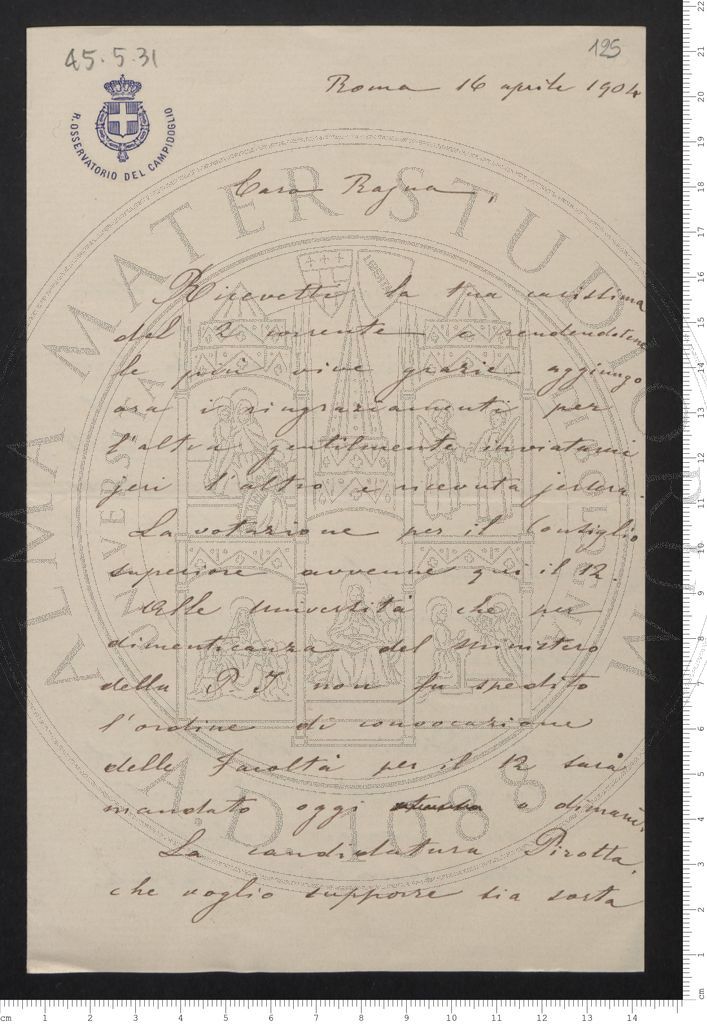 45.5.31
125
R. OSSERVATORIO DEL CAMPIDOGLIO
Roma 16 aprile 1904
Caro Rajna,
Ricevetti la tua carissima
del 2 corrente e rendendotene
le più vive grazie aggiungo
ora i ringraziamenti per
l'altra gentilmente inviatami
jeri l'altro e ricevuta jersera.
La votazione per il Consiglio
superiore avvenne qui il 12.
Alle Università che per
dimenticanza del ministero
della P. I. non fu spedito
l'ordine di convocazione
delle Facoltà per il 12 sarà
mandato oggi o dimani.
La candidatura Pirotta,
che voglio supporre sia sorta
ALMA MATER STUDIORUM
A.D. 1088